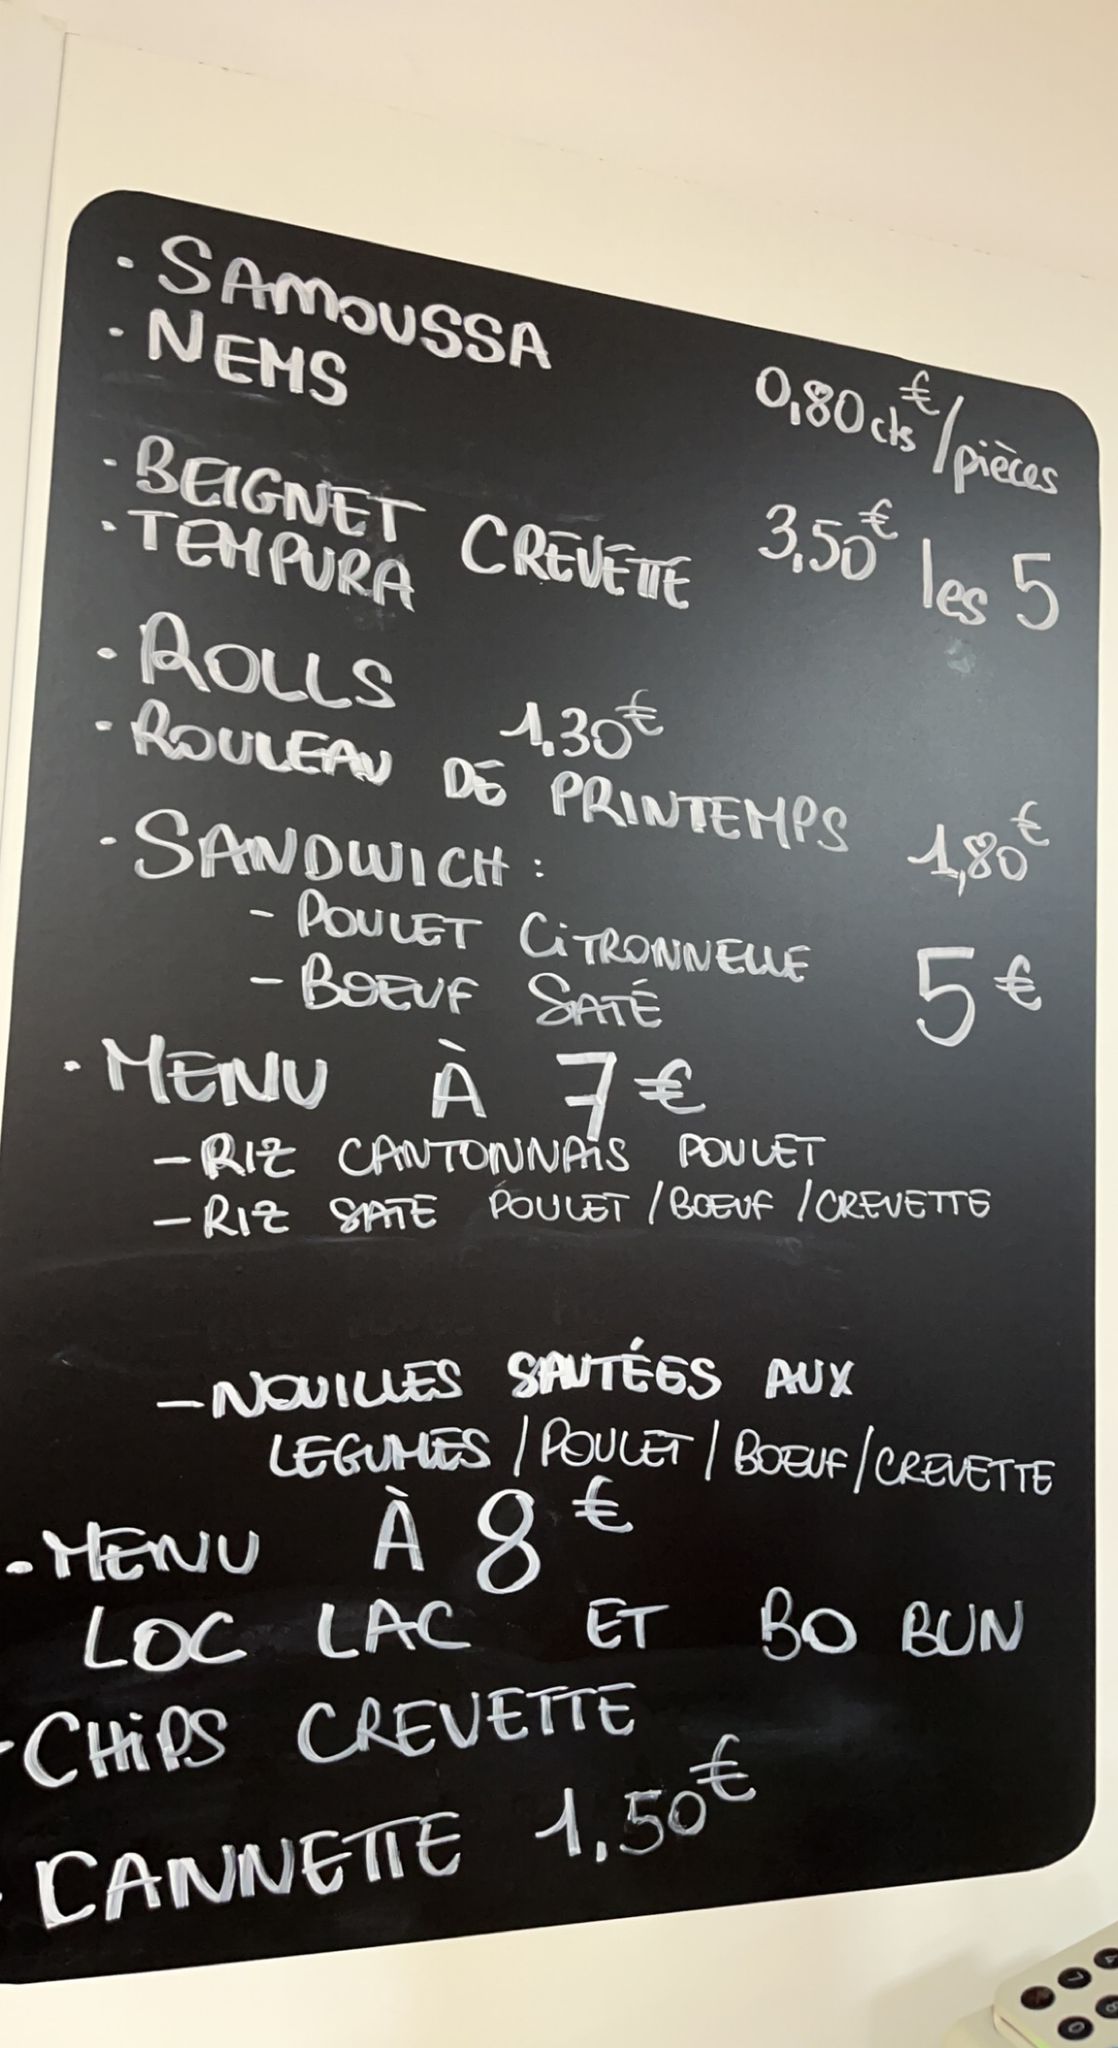 · SAMOUSSA
· NEMS 0,80cts€/pièces
· BEIGNET CREVETTE 3,50€ les 5
· TEMPURA
· ROLLS 1,30€
· ROULEAU DE PRINTEMPS 1,80€
· SANDWICH :
- POULET CITRONNELLE 5€
- BOEUF SATÉ
· MENU À 7€
- RIZ CANTONNAIS POULET
- RIZ SATE POULET / BOEUF / CREVETTE
- NOUILLES SAUTÉES AUX
LEGUMES / POULET / BOEUF / CREVETTE
- MENU À 8€
LOC LAC ET BO BUN
- CHIPS CREVETTE
· CANNETTE 1,50€